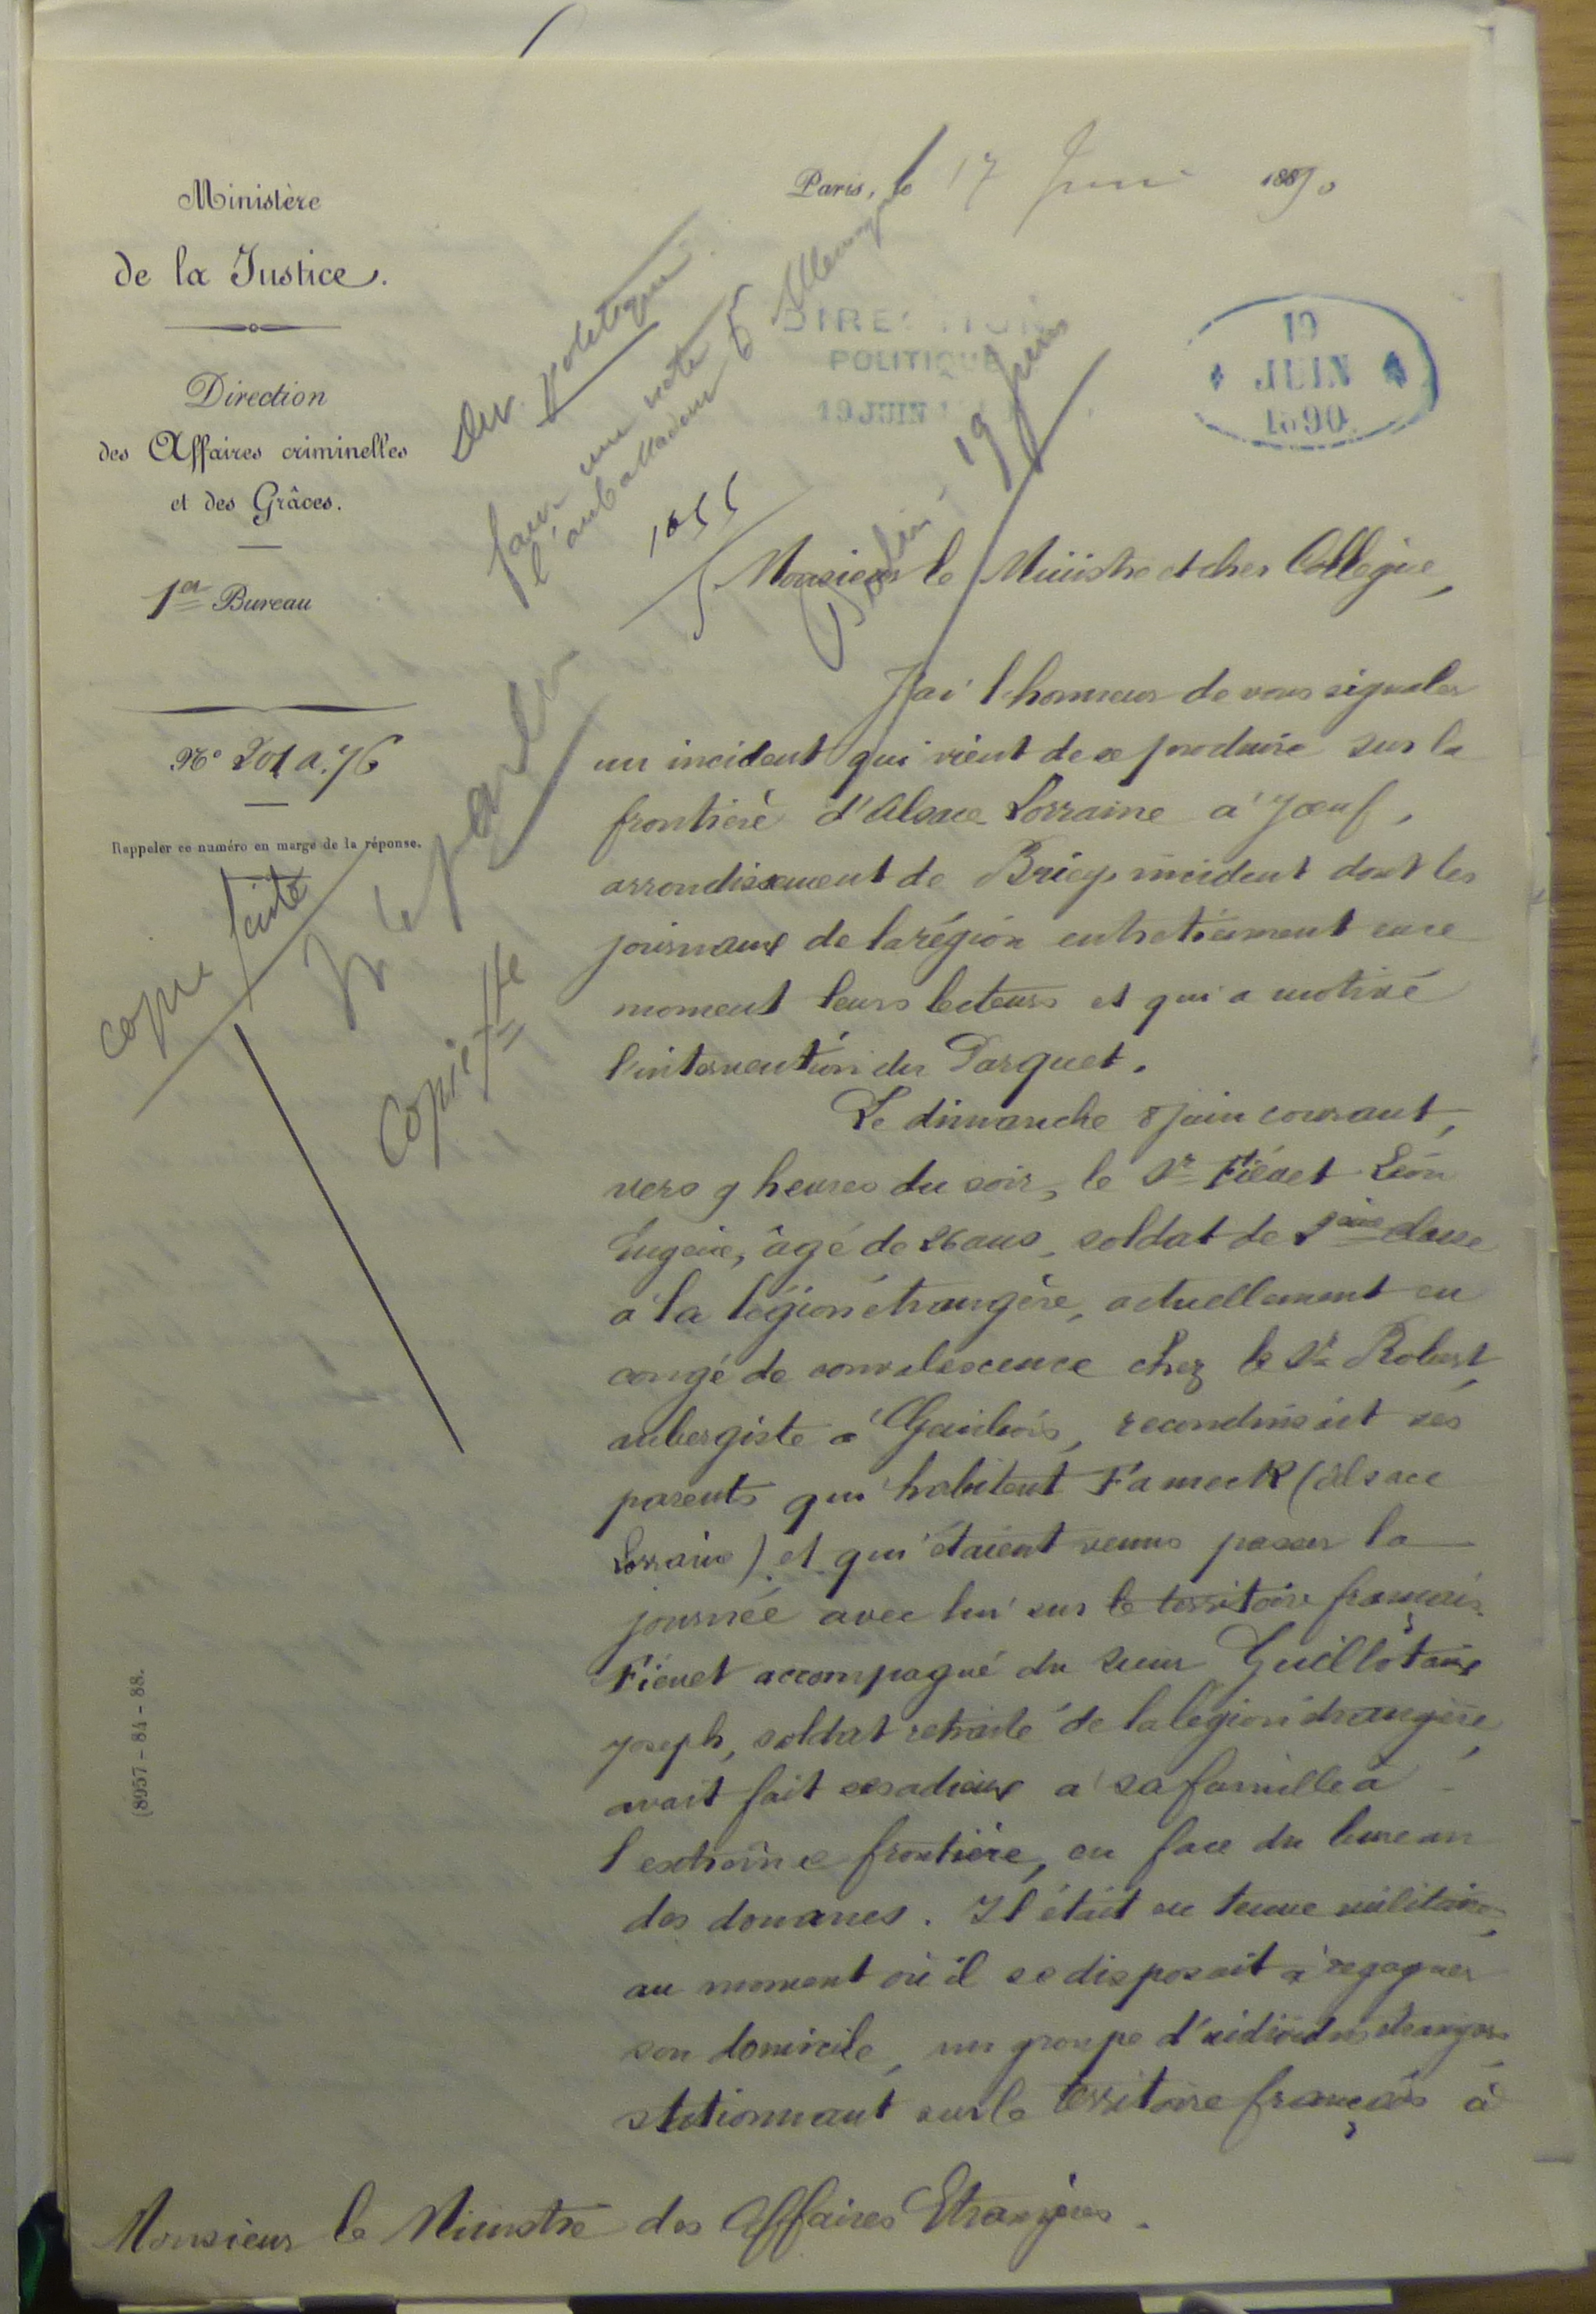 Ministère
de la Justice.
Direction
des Affaires criminelles
et des Grâces.
1er Bureau
No 201 a. 76
Rappeler ce numéro en marge de la réponse.
Paris, le 17 Juin 1890
Dir. politique
faire une note
l'ambassadeur Allemagne
DIRECTION
POLITIQUE
19 JUIN
19
JUIN
1890
Berlin, 19 Juin
copie faite
Copie fte
Monsieur le Ministre et cher Collègue,
J'ai l'honneur de vous signaler
un incident qui vient de se produire sur la
frontière d'Alsace Lorraine à Joeuf,
arrondissement de Briey, incident dont les
journaux de la région entretiennent en ce
moment leurs lecteurs et qui a motivé
l'intervention du Parquet.
Le dimanche 8 juin courant,
vers 9 heures du soir, le Sr Fiévet Léon
Eugène, âgé de 26 ans, soldat de 2ème classe
à la légion étrangère, actuellement en
congé de convalescence chez le Sr Robert,
aubergiste à recondui​sait ses
parents qui habitent Fameck (Alsace
Lorraine) et qui étaient venus passer la
journée avec lui sur le territoire français.
Fiévet accompagné du sieur Guillotaux
Joseph, soldat retraité de la légion étrangère,
avait fait ses adieux à sa famille à
l'extrême frontière, en face du bureau
des douanes. Il était en tenue militaire,
au moment où il se disposait à regagner
son domicile, un groupe d'individus étrangers
stationnant sur le territoire français à
Monsieur le Ministre des Affaires Etrangères.
(8957-84-88.